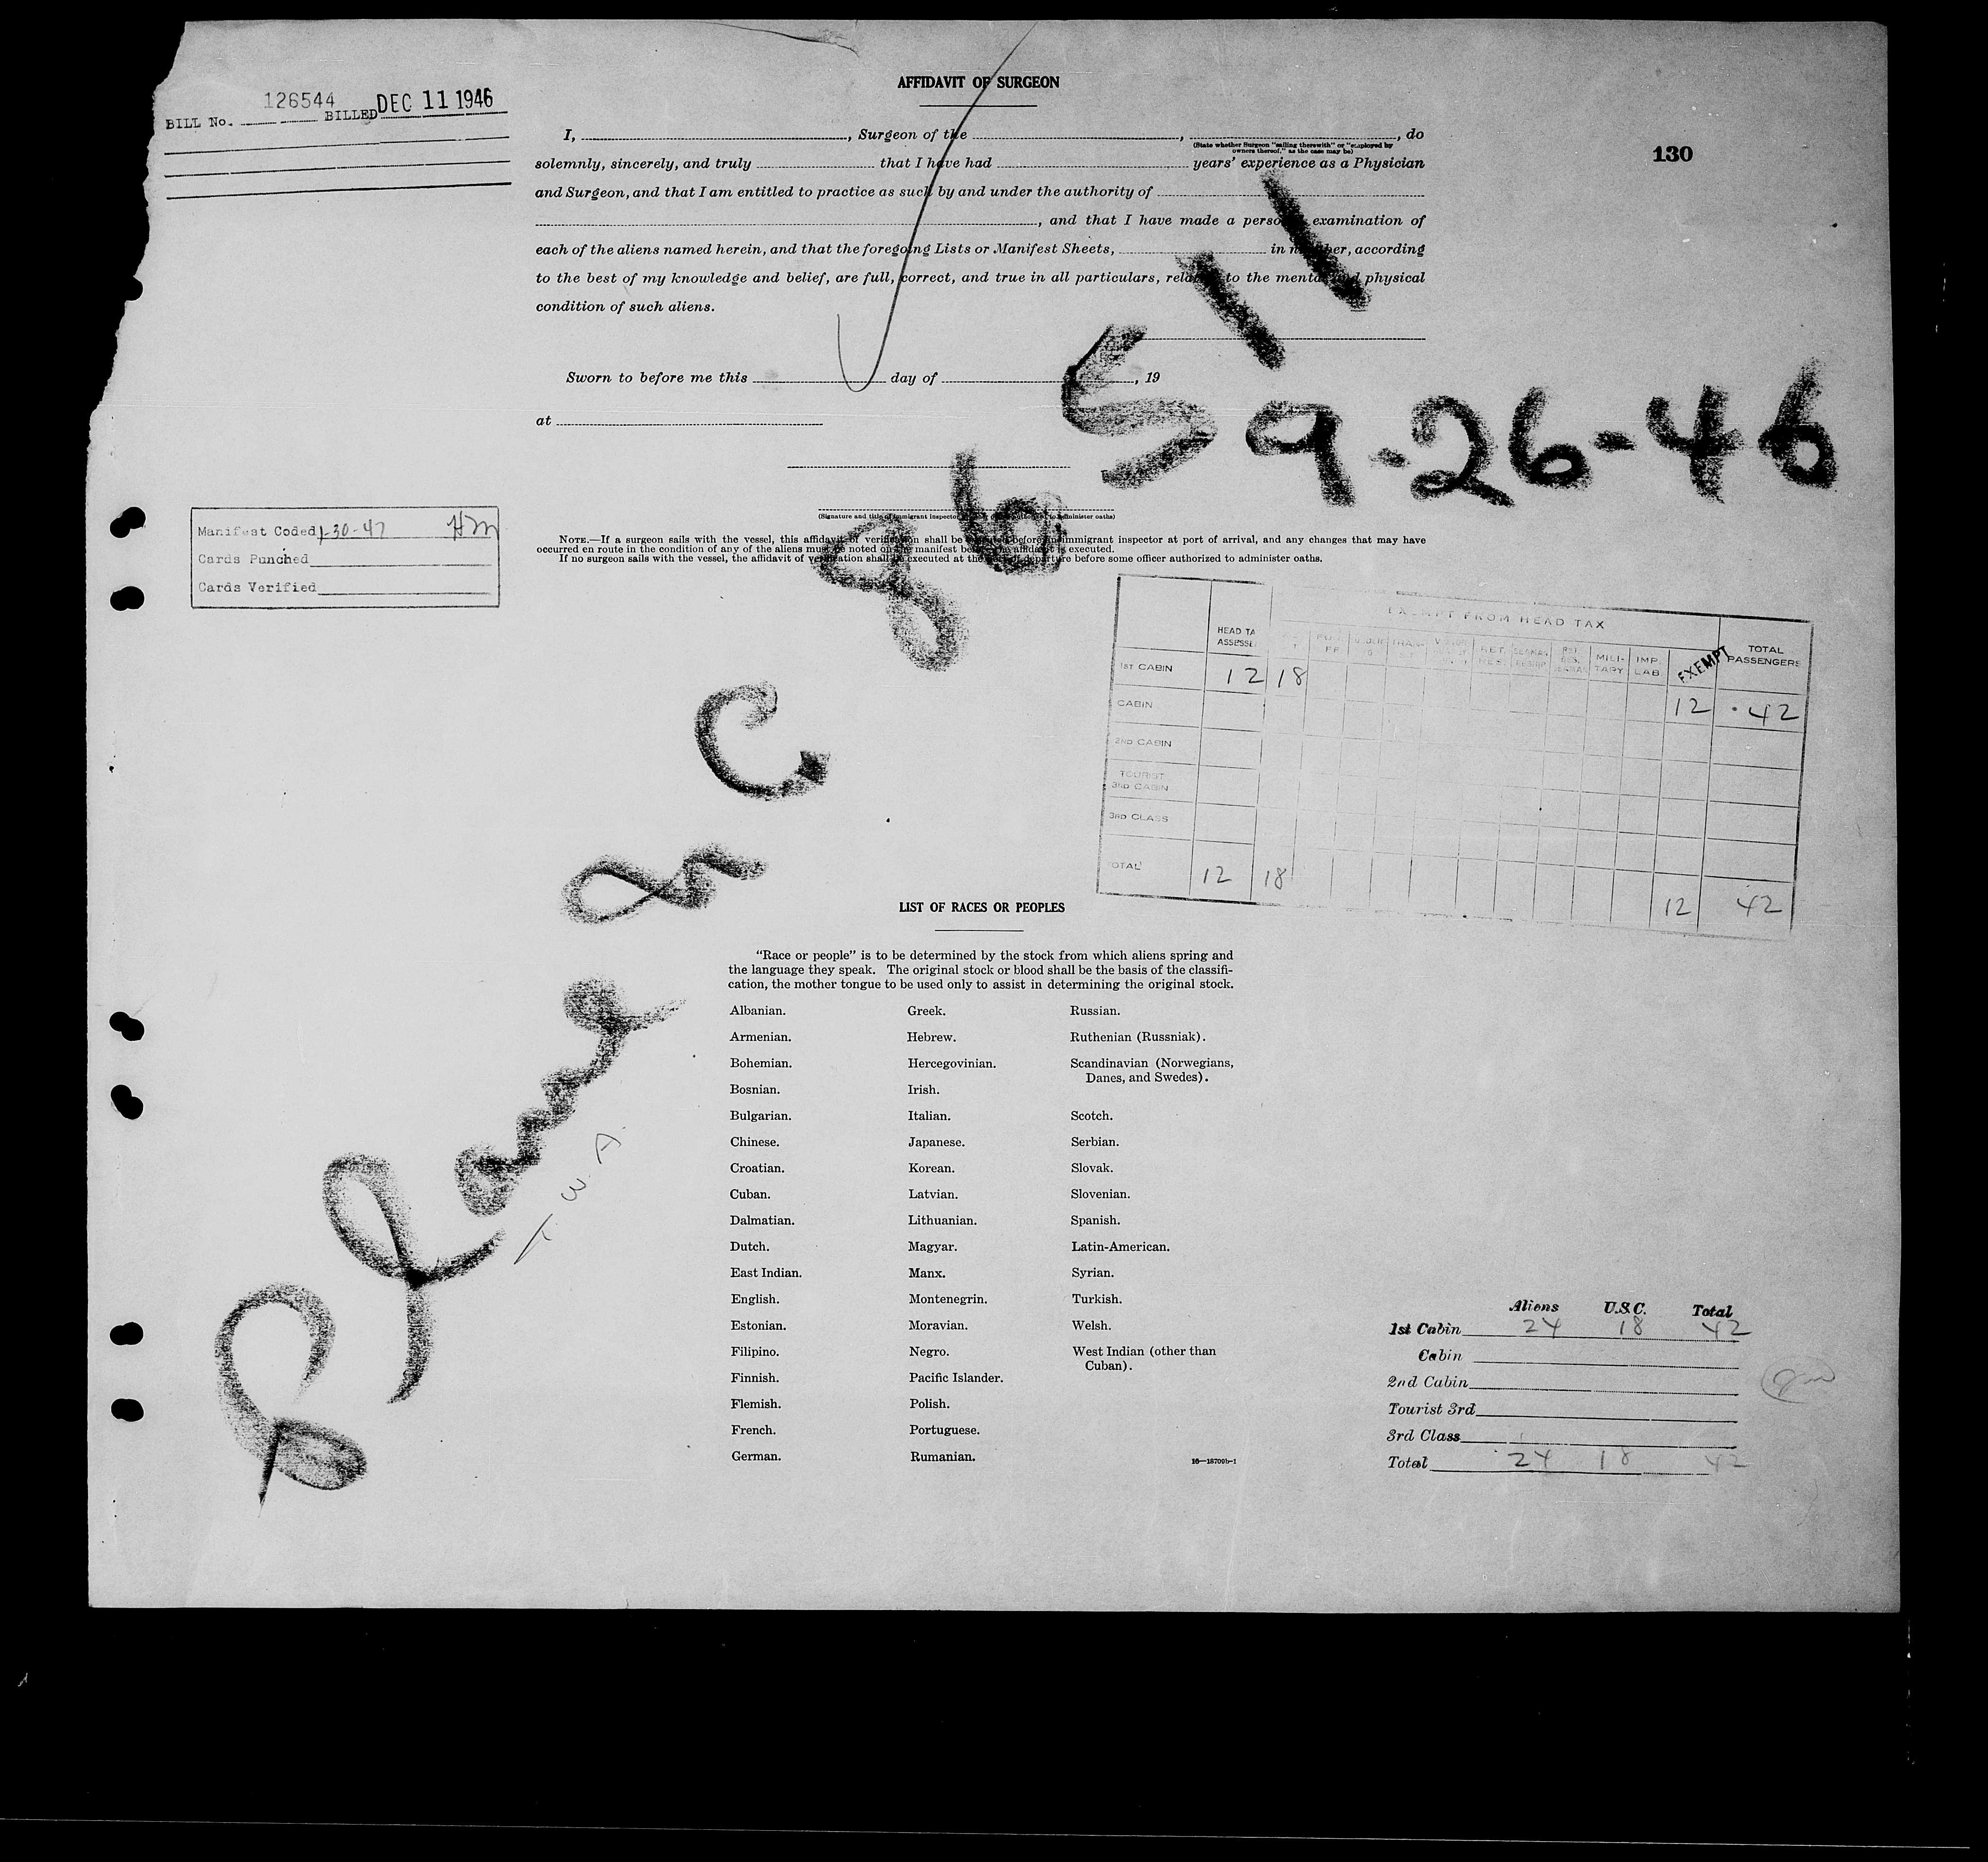 126544
BILL No. BILLED DEC 11 1946
130
AFFIDAVIT OF SURGEON
I, , Surgeon of the , , do
(State whether Surgeon "sailing therewith" or "employed by
owners thereof," as the case may be)
solemnly, sincerely, and truly that I have had years' experience as a Physician
and Surgeon, and that I am entitled to practice as such by and under the authority of
, and that I have made a personal examination of
each of the aliens named herein, and that the foregoing Lists or Manifest Sheets, in number, according
to the best of my knowledge and belief, are full, correct, and true in all particulars, relative to the mental and physical
condition of such aliens.
Sworn to before me this day of , 19
at
(Signature and title of immigrant inspector to administer oaths)
NOTE.—If a surgeon sails with the vessel, this affidavit of verification shall be executed before an immigrant inspector at port of arrival, and any changes that may have
occurred en route in the condition of any of the aliens must be noted on the manifest before the affidavit is executed.
If no surgeon sails with the vessel, the affidavit of verification shall be executed at the port of departure before some officer authorized to administer oaths.
9-26-46
Manifest Coded 1-30-47 HM
Cards Punched
Cards Verified
EXEMPT FROM HEAD TAX
HEAD TA ASSESSE MILITARY IMP. LAB. EXEMPT TOTAL PASSENGERS
1ST CABIN 12 18
CABIN 12 42
2ND CABIN
TOURIST
3RD CABIN
3RD CLASS
TOTAL 12 18 12 42
Plane
T W A
LIST OF RACES OR PEOPLES
"Race or people" is to be determined by the stock from which aliens spring and
the language they speak. The original stock or blood shall be the basis of the classifi-
cation, the mother tongue to be used only to assist in determining the original stock.
Albanian.
Armenian.
Bohemian.
Bosnian.
Bulgarian.
Chinese.
Croatian.
Cuban.
Dalmatian.
Dutch.
East Indian.
English.
Estonian.
Filipino.
Finnish.
Flemish.
French.
German.
Greek.
Hebrew.
Hercegovinian.
Irish.
Italian.
Japanese.
Korean.
Latvian.
Lithuanian.
Magyar.
Manx.
Montenegrin.
Moravian.
Negro.
Pacific Islander.
Polish.
Portuguese.
Rumanian.
Russian.
Ruthenian (Russniak).
Scandinavian (Norwegians,
Danes, and Swedes).
Scotch.
Serbian.
Slovak.
Slovenian.
Spanish.
Latin-American.
Syrian.
Turkish.
Welsh.
West Indian (other than
Cuban).
16—18709b-1
Aliens U.S.C. Total
1st Cabin 24 18 42
Cabin
2nd Cabin
Tourist 3rd
3rd Class
Total 24 18 42